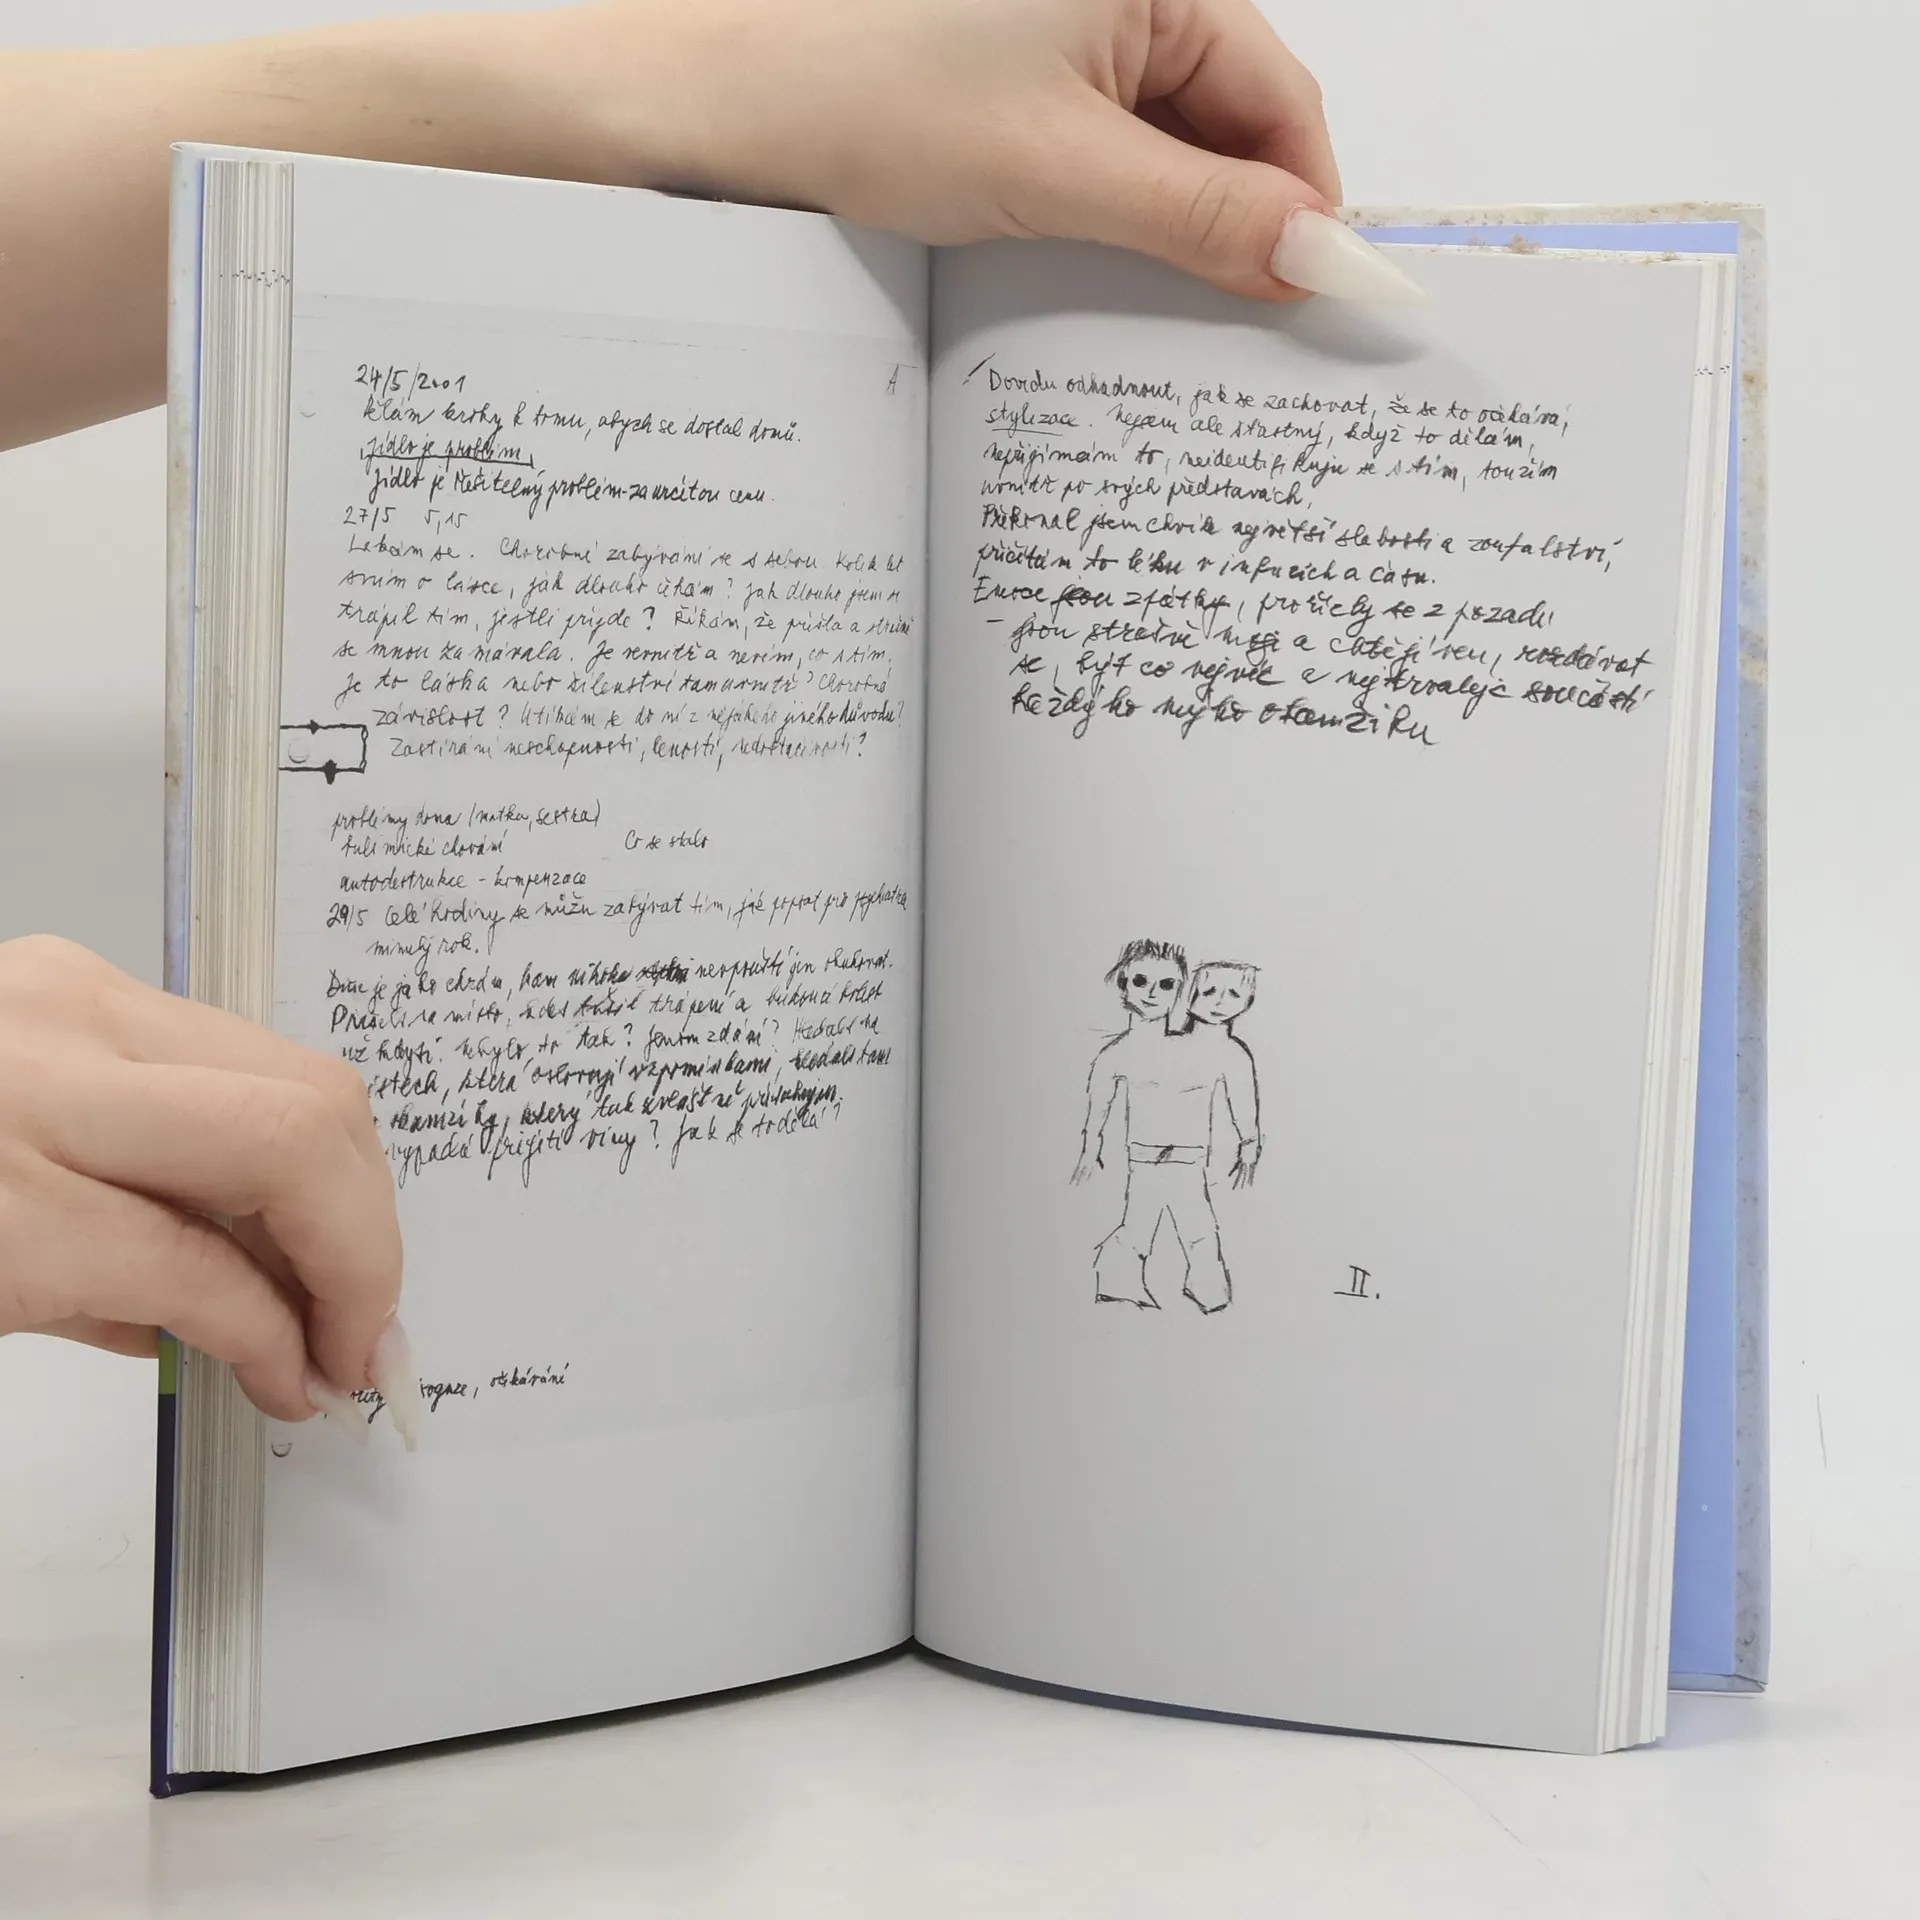 24/5/2001
A
Dělám kroky k tomu, abych se dostal domů.
Jídlo je problém,
Jídlo je řešitelný problém - za určitou cenu.
27/5 5,15
Lekám se. Chorobné zabývání se s sebou. Kolik let
sním o lásce, jak dlouho čekám? Jak dlouho jsem se
trápil tím, jestli přijde? Říkám, že přišla a
se mnou zamávala. Je uvnitř a nevím, co s tím.
Je to láska nebo šílenství tam uvnitř? Chorobná
závislost? Utíkám se do ní z nějakého jiného důvodu?
Zastírání neschopnosti, lenosti, nedostačivosti?
problémy doma (matka, sestra)
bulimické chování
Co se stalo
autodestrukce - kompenzace
29/5 Celé hodiny se můžu zabývat tím, jak popsat pro psychiatra
minulý rok.
Duše je jako chrám, kam nikoho neopouští jen
místo, trápení a bolest
už kdysi. Nebylo to tak? Jenom zdání? Hledals na
ístech, která oslovují vzpomínkami, hledals tam
okamžiky, který tak zvláštně přitahujou.
vypadá přijetí viny? Jak se to dělá?
ognze, očekávání
Dovedu odhadnout, jak se zachovat, že se to očekává,
stylizace. Nejsem ale šťastný, když to dělám,
nepřijímám to, neidentifikuju se s tím, toužím
uvnitř po svých představách,
Překonal jsem chvíle největší slabosti a zoufalství,
přičítám to léku v infuzích a času.
Emoce jsou zpátky, prořícly se z pozadu
- jsou strašně moji a chtějí ven, rozdávat
se, být co nejvíc a nejtrvalejc součástí
každýho mýho okamžiku
II.